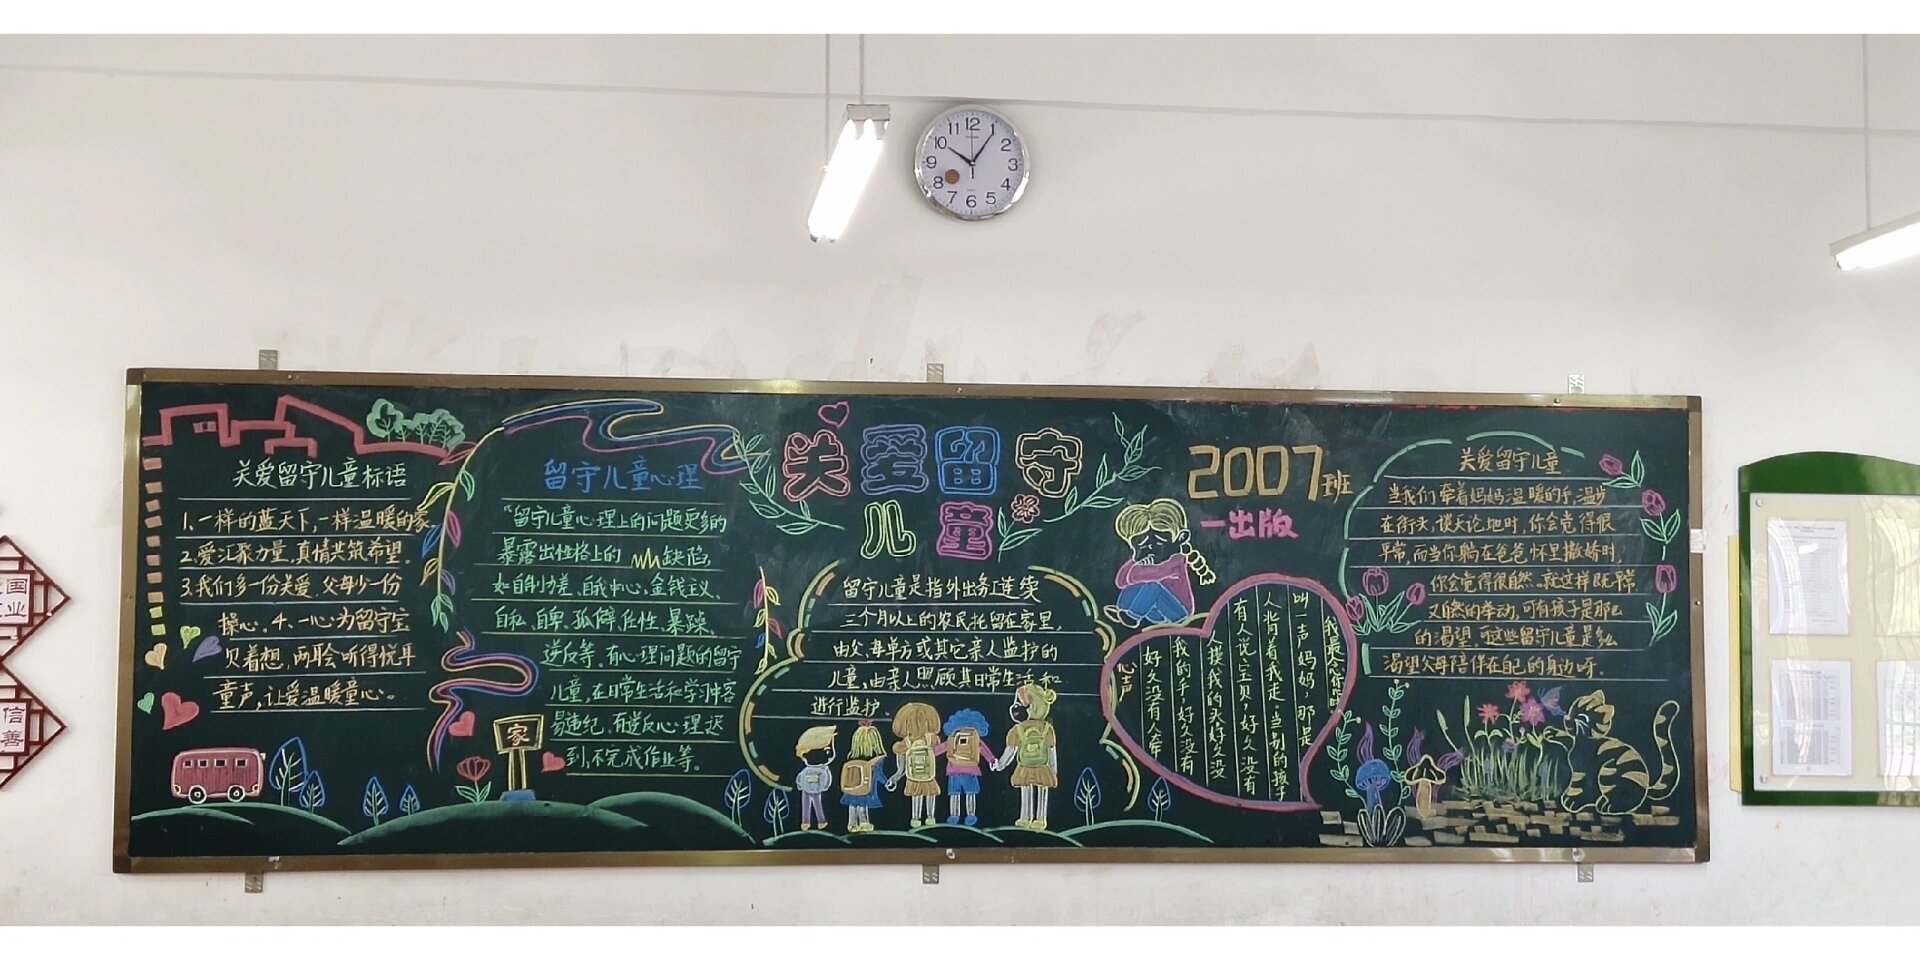 12
1
2
3
4
5
6
7
8
9
10
11
国
业
信
善
关爱留守儿童标语
1.一样的蓝天下,一样温暖的家
2.爱汇聚力量,真情共筑希望.
3.我们多一份关爱,父母少一份
操心。4.一心为留守宝
贝着想,两耳会听得悦耳
童声,让爱温暖童心。
家
留守儿童心理
"留守儿童心理上的问题更多的
暴露出性格上的缺陷,
如自制力差、自我中心、金钱主义、
自私、自卑、孤僻、任性、暴躁、
逆反等。有心理问题的留守
儿童,在日常生活和学习中容
易违纪、有逆反心理、迟
到、不完成作业等。
关爱留守
儿童
留守儿童是指外出务工连续
三个月以上的农民托留在家里,
由父、母单方或其它亲人监护的
儿童,由亲人照顾其日常生活和
进行监护。
2007班
一出版
我最念你的
叫一声妈妈,那是
人背着我走。当别的孩子
有人说:宝贝,好久没有
人摸我的头好久没
我的手,好久没有
好久没有人牵
心声
关爱留守儿童
当我们牵着妈妈温暖的手,漫步
在街头,谈天论地时,你会觉得很
平常,而当你躺在爸爸怀里撒娇时,
你会觉得很自然。就这样既平常
又自然的举动,可有孩子是那么
的渴望。可这些留守儿童是多么
渴望父母陪伴在自己的身边呀.